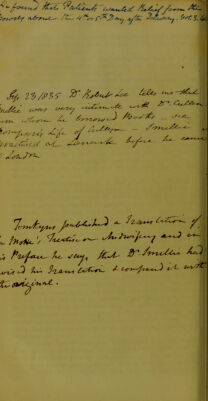 found that Patients wanted Relief from the
Bowels about the 4th or 5th Day after Delivery.
Sep. 23/1835 Dr Robert Lee tells me that
Smellie was very intimate with Dr Cullen
from whom he borrowed Books - see
Thompson's Life of Cullen - Smellie
practised at Lanark before he came
to London
Tomkyns published a Translation of
La Motte's Treatise on Midwifery and in
his Preface he says, that Dr Smellie had
revised his Translation & compared it with
the original.